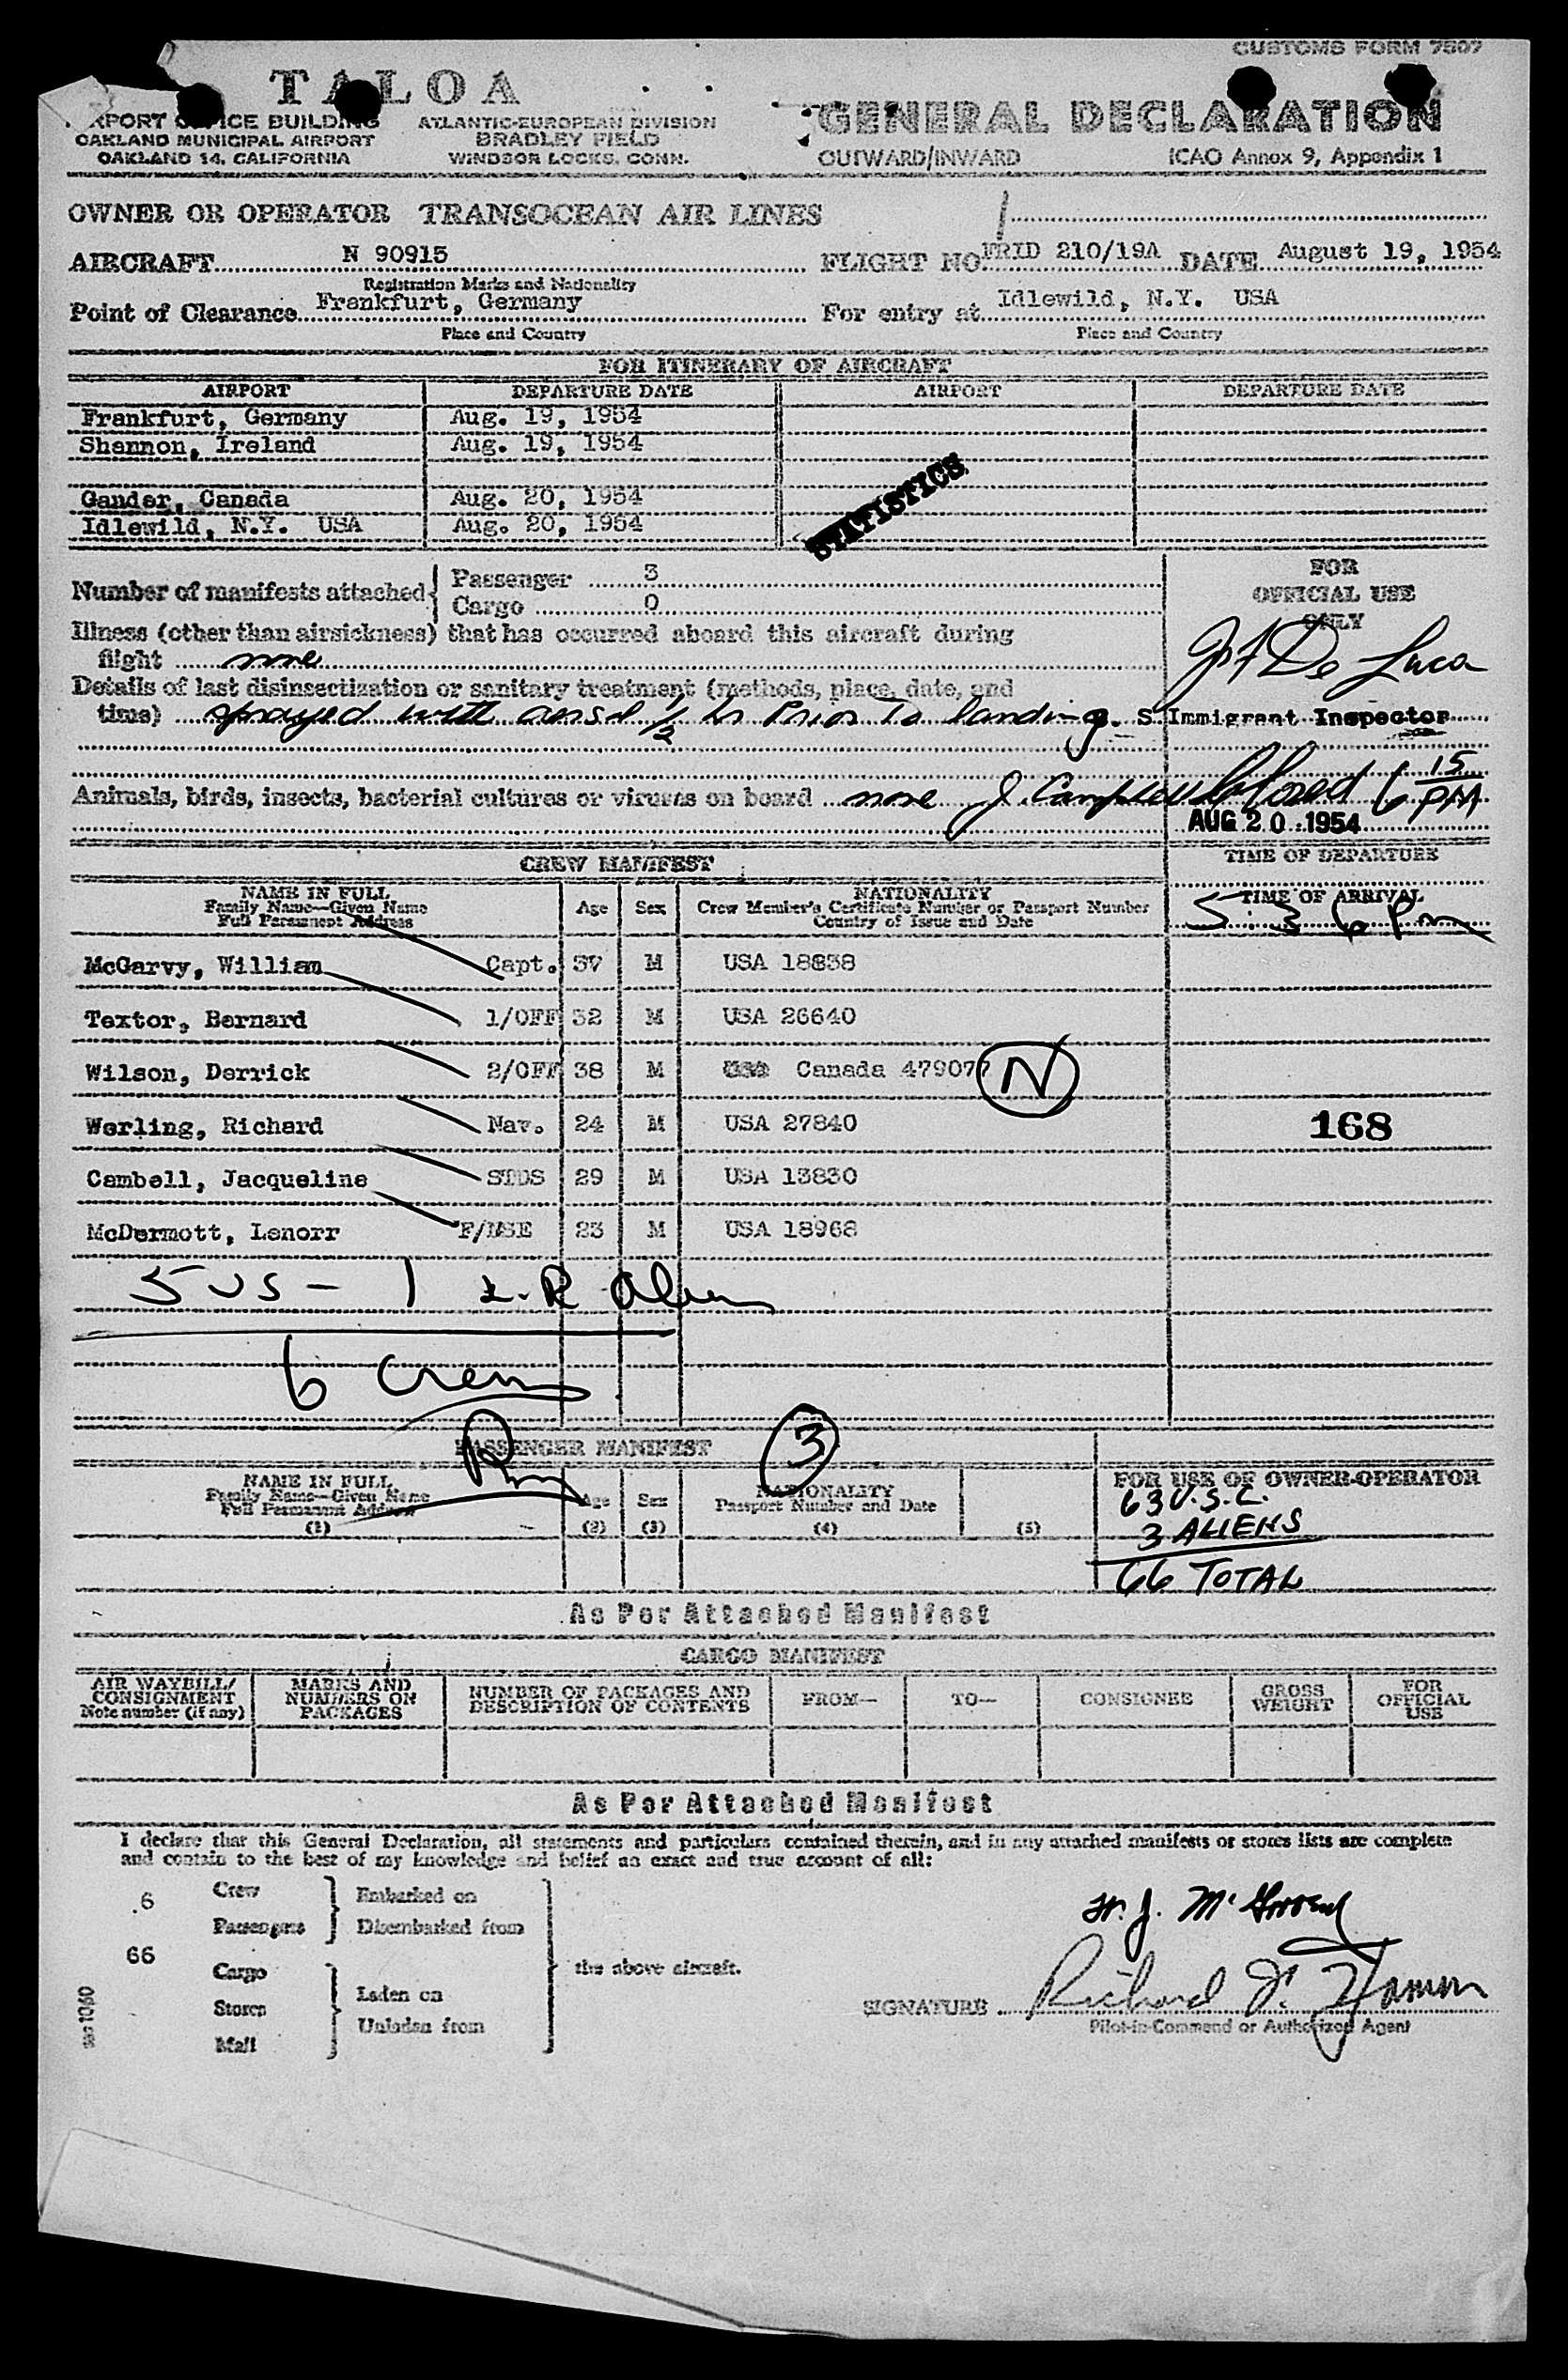 CUSTOMS FORM 7507
TALOA
OAKLAND MUNICIPAL AIRPORT
OAKLAND 14, CALIFORNIA
ATLANTIC-EUROPEAN DIVISION
BRADLEY FIELD
WINDSOR LOCKS, CONN.
GENERAL DECLARATION
OUTWARD/INWARD ICAO Annex 9, Appendix 1
OWNER OR OPERATOR TRANSOCEAN AIR LINES
AIRCRAFT N 90915 FLIGHT NO 210/19A DATE August 19, 1954
Registration Marks and Nationality
Point of Clearance Frankfurt, Germany For entry at Idlewild, N.Y. USA
Place and Country Place and Country
FOR ITINERARY OF AIRCRAFT
AIRPORT DEPARTURE DATE AIRPORT DEPARTURE DATE
Frankfurt, Germany Aug. 19, 1954
Shannon, Ireland Aug. 19, 1954
Gander, Canada Aug. 20, 1954
Idlewild, N.Y. USA Aug. 20, 1954
STATISTICS
Number of manifests attached { Passenger 3
Cargo 0
FOR
OFFICIAL USE
ONLY
Illness (other than airsickness) that has occurred aboard this aircraft during
flight none
De Luca
Details of last disinsectization or sanitary treatment (methods, place, date, and
time) sprayed with aersol 1/2 hr Prior To landing
S. Immigrant Inspector
Animals, birds, insects, bacterial cultures or viruses on board none
6 15 PM
AUG 20 1954
TIME OF DEPARTURE
TIME OF ARRIVAL
5:36 Pm
CREW MANIFEST
NAME IN FULL
Family Name—Given Name
Full Permanent Address
Age Sex
NATIONALITY
Crew Member's Certificate Number or Passport Number
Country of Issue and Date
McGarvy, William Capt. 37 M USA 18838
Textor, Bernard 1/OFF 32 M USA 26640
Wilson, Derrick 2/OFF 38 M Canada 479077 N
Werling, Richard Nav. 24 M USA 27840
168
Cambell, Jacqueline STDS 29 M USA 13830
McDermott, Lenorr 23 M USA 18968
5 US - 1 Alien
6 Crew
PASSENGER MANIFEST
3
NAME IN FULL
Family Name—Given Name
Full Permanent Address
(1)
Age
(2)
Sex
(3)
NATIONALITY
Passport Number and Date
(4) (5)
FOR USE OF OWNER-OPERATOR
63 U.S.C.
3 ALIENS
66 TOTAL
As Per Attached Manifest
CARGO MANIFEST
AIR WAYBILL/
CONSIGNMENT
Note number (if any)
MARKS AND
NUMBERS ON
PACKAGES
NUMBER OF PACKAGES AND
DESCRIPTION OF CONTENTS
FROM—
TO—
CONSIGNEE
GROSS
WEIGHT
FOR
OFFICIAL
USE
As Per Attached Manifest
I declare that this General Declaration, all statements and particulars contained therein, and in any attached manifests or stores lists are complete
and contain to the best of my knowledge and belief an exact and true account of all:
6 Crew
Passengers
Embarked on
Disembarked from
66
Cargo
Stores
Mail
Laden on
Unladen from
the above aircraft.
SIGNATURE Richard
Pilot-in-Command or Authorized Agent